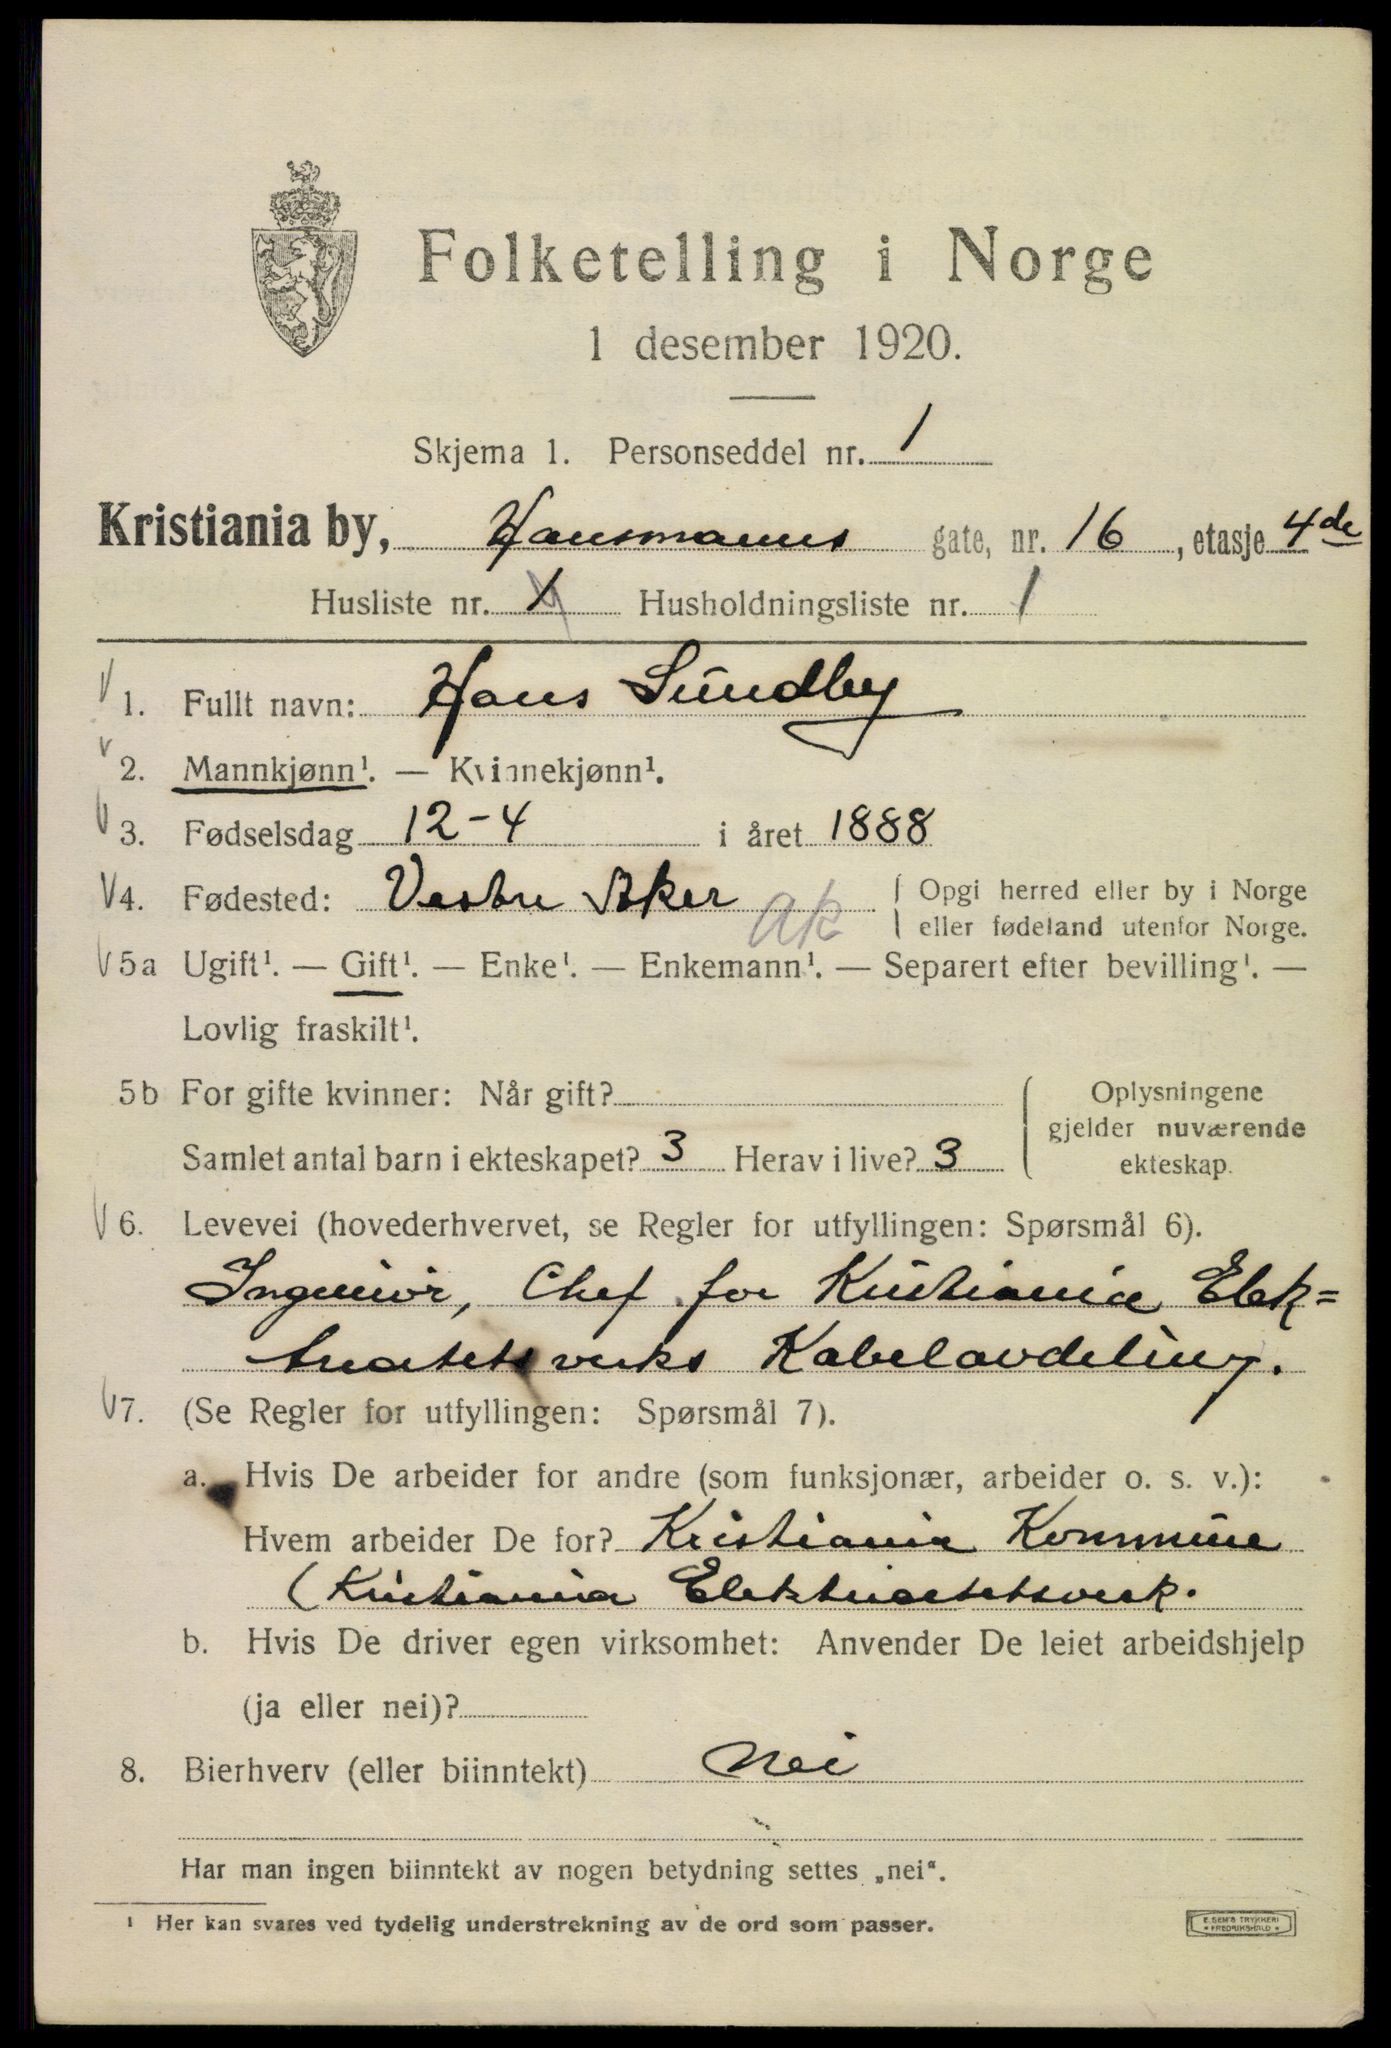 Folketelling i Norge
1 desember 1920.
Skjema 1. Personseddel nr. 1
Kristiania by, Hausmanns gate, nr. 16, etasje 4de
Husliste nr. 1 Husholdningsliste nr. 1
1. Fullt navn: Hans Sundby
2. Mannkjønn¹. — Kvinnekjønn¹.
3. Fødselsdag 12-4 i året 1888
4. Fødested: Vestre Aker ak { Opgi herred eller by i Norge
eller fødeland utenfor Norge.
5a Ugift¹. — Gift¹. — Enke¹. — Enkemann¹. — Separert efter bevilling¹. —
Lovlig fraskilt¹.
5b For gifte kvinner: Når gift?
Samlet antal barn i ekteskapet? 3 Herav i live? 3
Oplysningene
gjelder nuværende
ekteskap.
6. Levevei (hovederhvervet, se Regler for utfyllingen: Spørsmål 6).
Ingeniør, Chef for Kristiania Elek=
tricitetsverks Kabelavdeling.
7. (Se Regler for utfyllingen: Spørsmål 7).
a. Hvis De arbeider for andre (som funksjonær, arbeider o. s. v.):
Hvem arbeider De for? Kristiania Kommune
(Kristiania Elektricitetsverk.
b. Hvis De driver egen virksomhet: Anvender De leiet arbeidshjelp
(ja eller nei)?
8. Bierhverv (eller biinntekt) nei
Har man ingen biinntekt av nogen betydning settes „nei“.
¹ Her kan svares ved tydelig understrekning av de ord som passer.
E. SEM'S TRYKKERI
FREDRIKSHALD